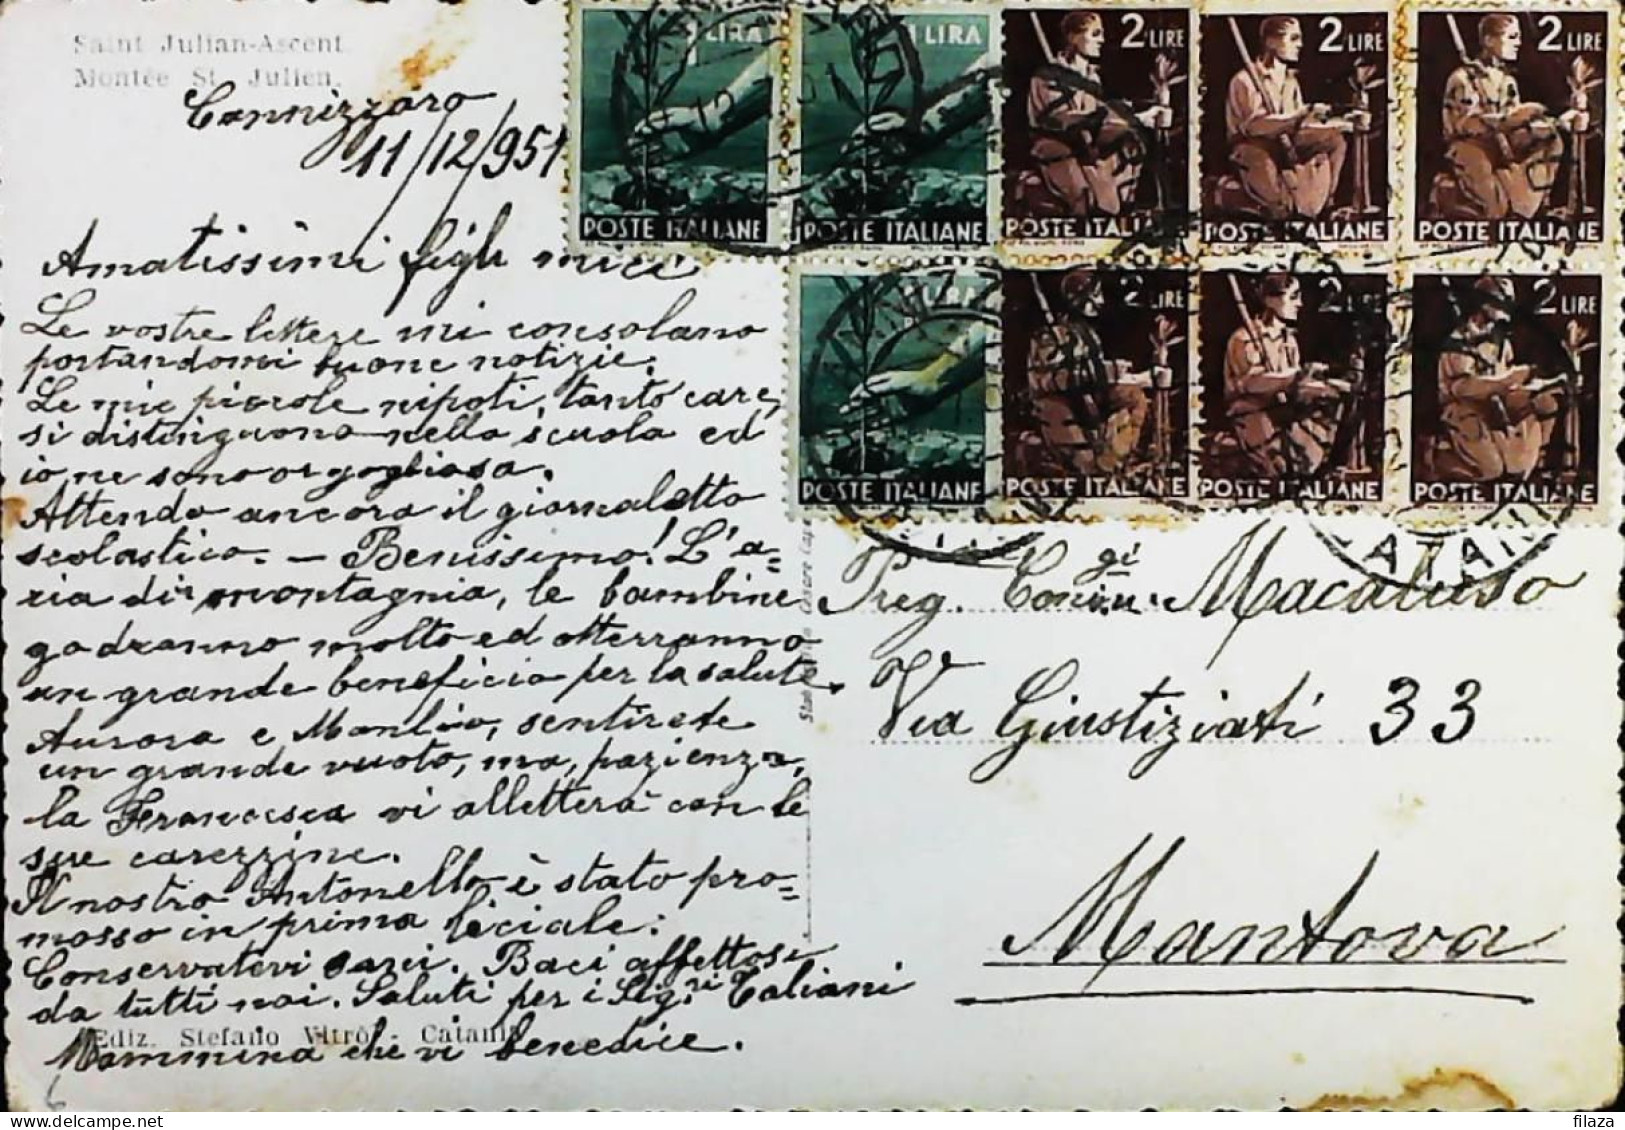 Saint Julian-Ascent
Montée St. Julien.
Cannizzaro
11/12/951
1 LIRA
1 LIRA
2 LIRE
2 LIRE
2 LIRE
POSTE ITALIANE
POSTE ITALIANE
POSTE ITALIANE
POSTE ITALIANE
POSTE ITALIANE
1 LIRA
2 LIRE
2 LIRE
2 LIRE
POSTE ITALIANE
POSTE ITALIANE
POSTE ITALIANE
POSTE ITALIANE
CATANIA
Amatissimi figli miei
Le vostre lettere mi consolano
portandomi buone notizie.
Le mie piccole nipoti, tanto care,
si distinguono nella scuola ed
io, ne sono orgogliosa.
Attendo ancora il giornaletto
scolastico. — Benissimo! L'a=
ria di montagnia, le bambine
godranno molto ed otterranno
un grande beneficio per la salute.
Aurora e Manlio, sentirete
un grande vuoto, ma, pazienza,
la Francesca vi alletterà con le
sue carezzine.
Il nostro Antonello è stato pro=
mosso in prima liciale.
Conservatevi sani. Baci affettosi
da tutti noi. Saluti per i Sig.ri Taliani
Mammina che vi benedice.
Ediz. Stefano Vitrò - Catania
Preg. Coniu.gi Macaluso
Via Giustiziati 33
Mantova